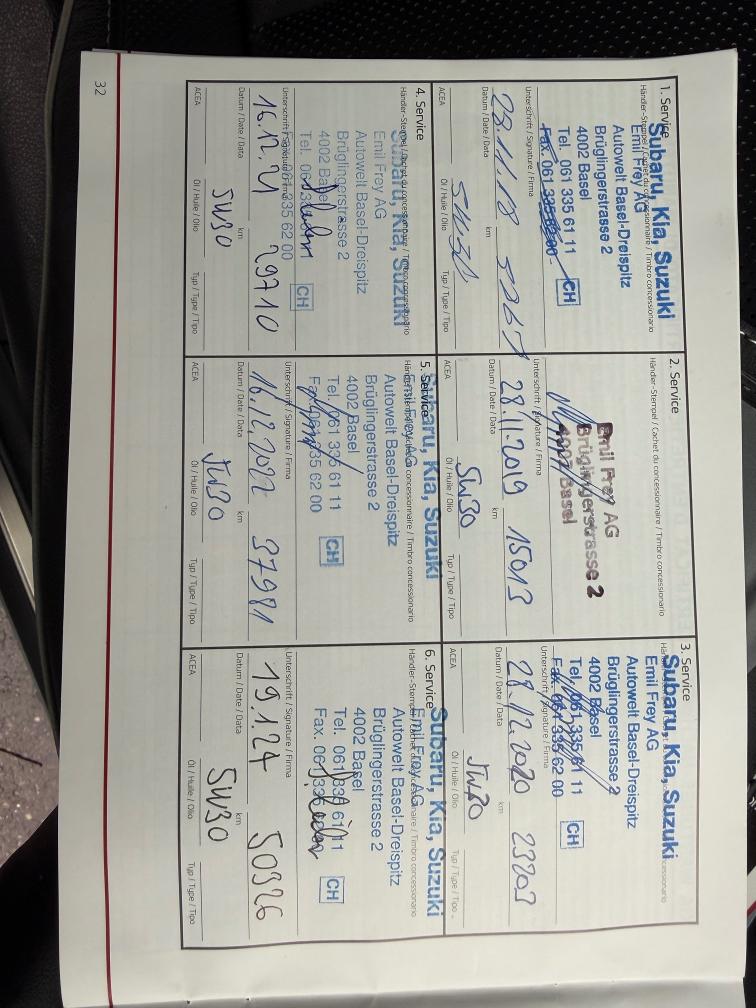 1. Service
Händler-Stempel / Cachet du concessionnaire / Timbro concessionario
Subaru, Kia, Suzuki
Emil Frey AG
Autowelt Basel-Dreispitz
Brüglingerstrasse 2
4002 Basel
Tel. 061 335 61 11
Fax. 061 335 62 00
CH
Unterschrift / Signature / Firma
28.11.18
Datum / Date / Data
km
5W30
ACEA
Öl / Huile / Olio
Typ / Type / Tipo
2. Service
Händler-Stempel / Cachet du concessionnaire / Timbro concessionario
Emil Frey AG
Brüglingerstrasse 2
4002 Basel
Unterschrift / Signature / Firma
28.11.2019 15013
Datum / Date / Data
km
5W30
ACEA
Öl / Huile / Olio
Typ / Type / Tipo
3. Service
Subaru, Kia, Suzuki
Emil Frey AG
Autowelt Basel-Dreispitz
Brüglingerstrasse 2
4002 Basel
Tel. 061 335 61 11
Fax. 061 335 62 00
CH
Unterschrift / Signature / Firma
28.12.2020 23203
Datum / Date / Data
km
5W30
ACEA
Öl / Huile / Olio
Typ / Type / Tipo
4. Service
Händler-Stempel / Cachet du concessionnaire / Timbro concessionario
Subaru, Kia, Suzuki
Emil Frey AG
Autowelt Basel-Dreispitz
Brüglingerstrasse 2
4002 Basel
Tel. 061 335 61 11
Fax. 061 335 62 00
CH
Unterschrift / Signature / Firma
16.12.21 29710
Datum / Date / Data
km
5W30
ACEA
Öl / Huile / Olio
Typ / Type / Tipo
5. Service
Händler-Stempel / Cachet du concessionnaire / Timbro concessionario
Subaru, Kia, Suzuki
Emil Frey AG
Autowelt Basel-Dreispitz
Brüglingerstrasse 2
4002 Basel
Tel. 061 335 61 11
Fax. 061 335 62 00
CH
Unterschrift / Signature / Firma
16.12.2022 37981
Datum / Date / Data
km
5W30
ACEA
Öl / Huile / Olio
Typ / Type / Tipo
6. Service
Händler-Stempel / Cachet du concessionnaire / Timbro concessionario
Subaru, Kia, Suzuki
Emil Frey AG
Autowelt Basel-Dreispitz
Brüglingerstrasse 2
4002 Basel
Tel. 061 335 61 11
Fax. 061 335
CH
Unterschrift / Signature / Firma
19.1.24 50326
Datum / Date / Data
km
5W30
ACEA
Öl / Huile / Olio
Typ / Type / Tipo
32